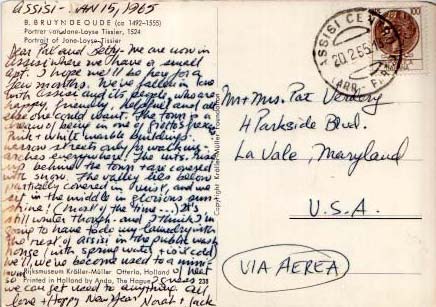 ASSISI - JAN 15, 1965
B. BRUYN DE OUDE (ca 1492-1555)
Portret van Jane-Loyse Tissier, 1524
Portrait of Jane-Loyse Tissier
Dear Pat and Betty - We are now in
Assisi where we have a small
apt. I hope we'll be here for a
few months. We've fallen in love
with Assisi and its people, who are
happy, friendly, helpful and all
else one could want. The town is a
dream of being in one of Giotto's frescoes
Pink + white marble buildings,
narrow streets only for walking -
arches everywhere! The mts. rise
behind the town + are covered
with snow. The valley lies below
partially covered in mist, and we
sit in the middle in glorious sun-
shine! (most of the time...) It's
still winter though - and I think I'm
going to have to do my laundry with
the rest of Assisi in the public wash
house (with spring water - ice cold)
well, we've become used to a mini-
mum of heat so I guess
we can get used to anything. All
love + Happy New Year Norah + Jack
Rijksmuseum Kröller-Müller Otterlo, Holland
Printed in Holland by Ando, The Hague 238
ASSISI CENTRO
20.2.65
100
Mr + Mrs. Pat
4 Parkside Blvd.
La Vale, Maryland
U.S.A.
VIA AEREA